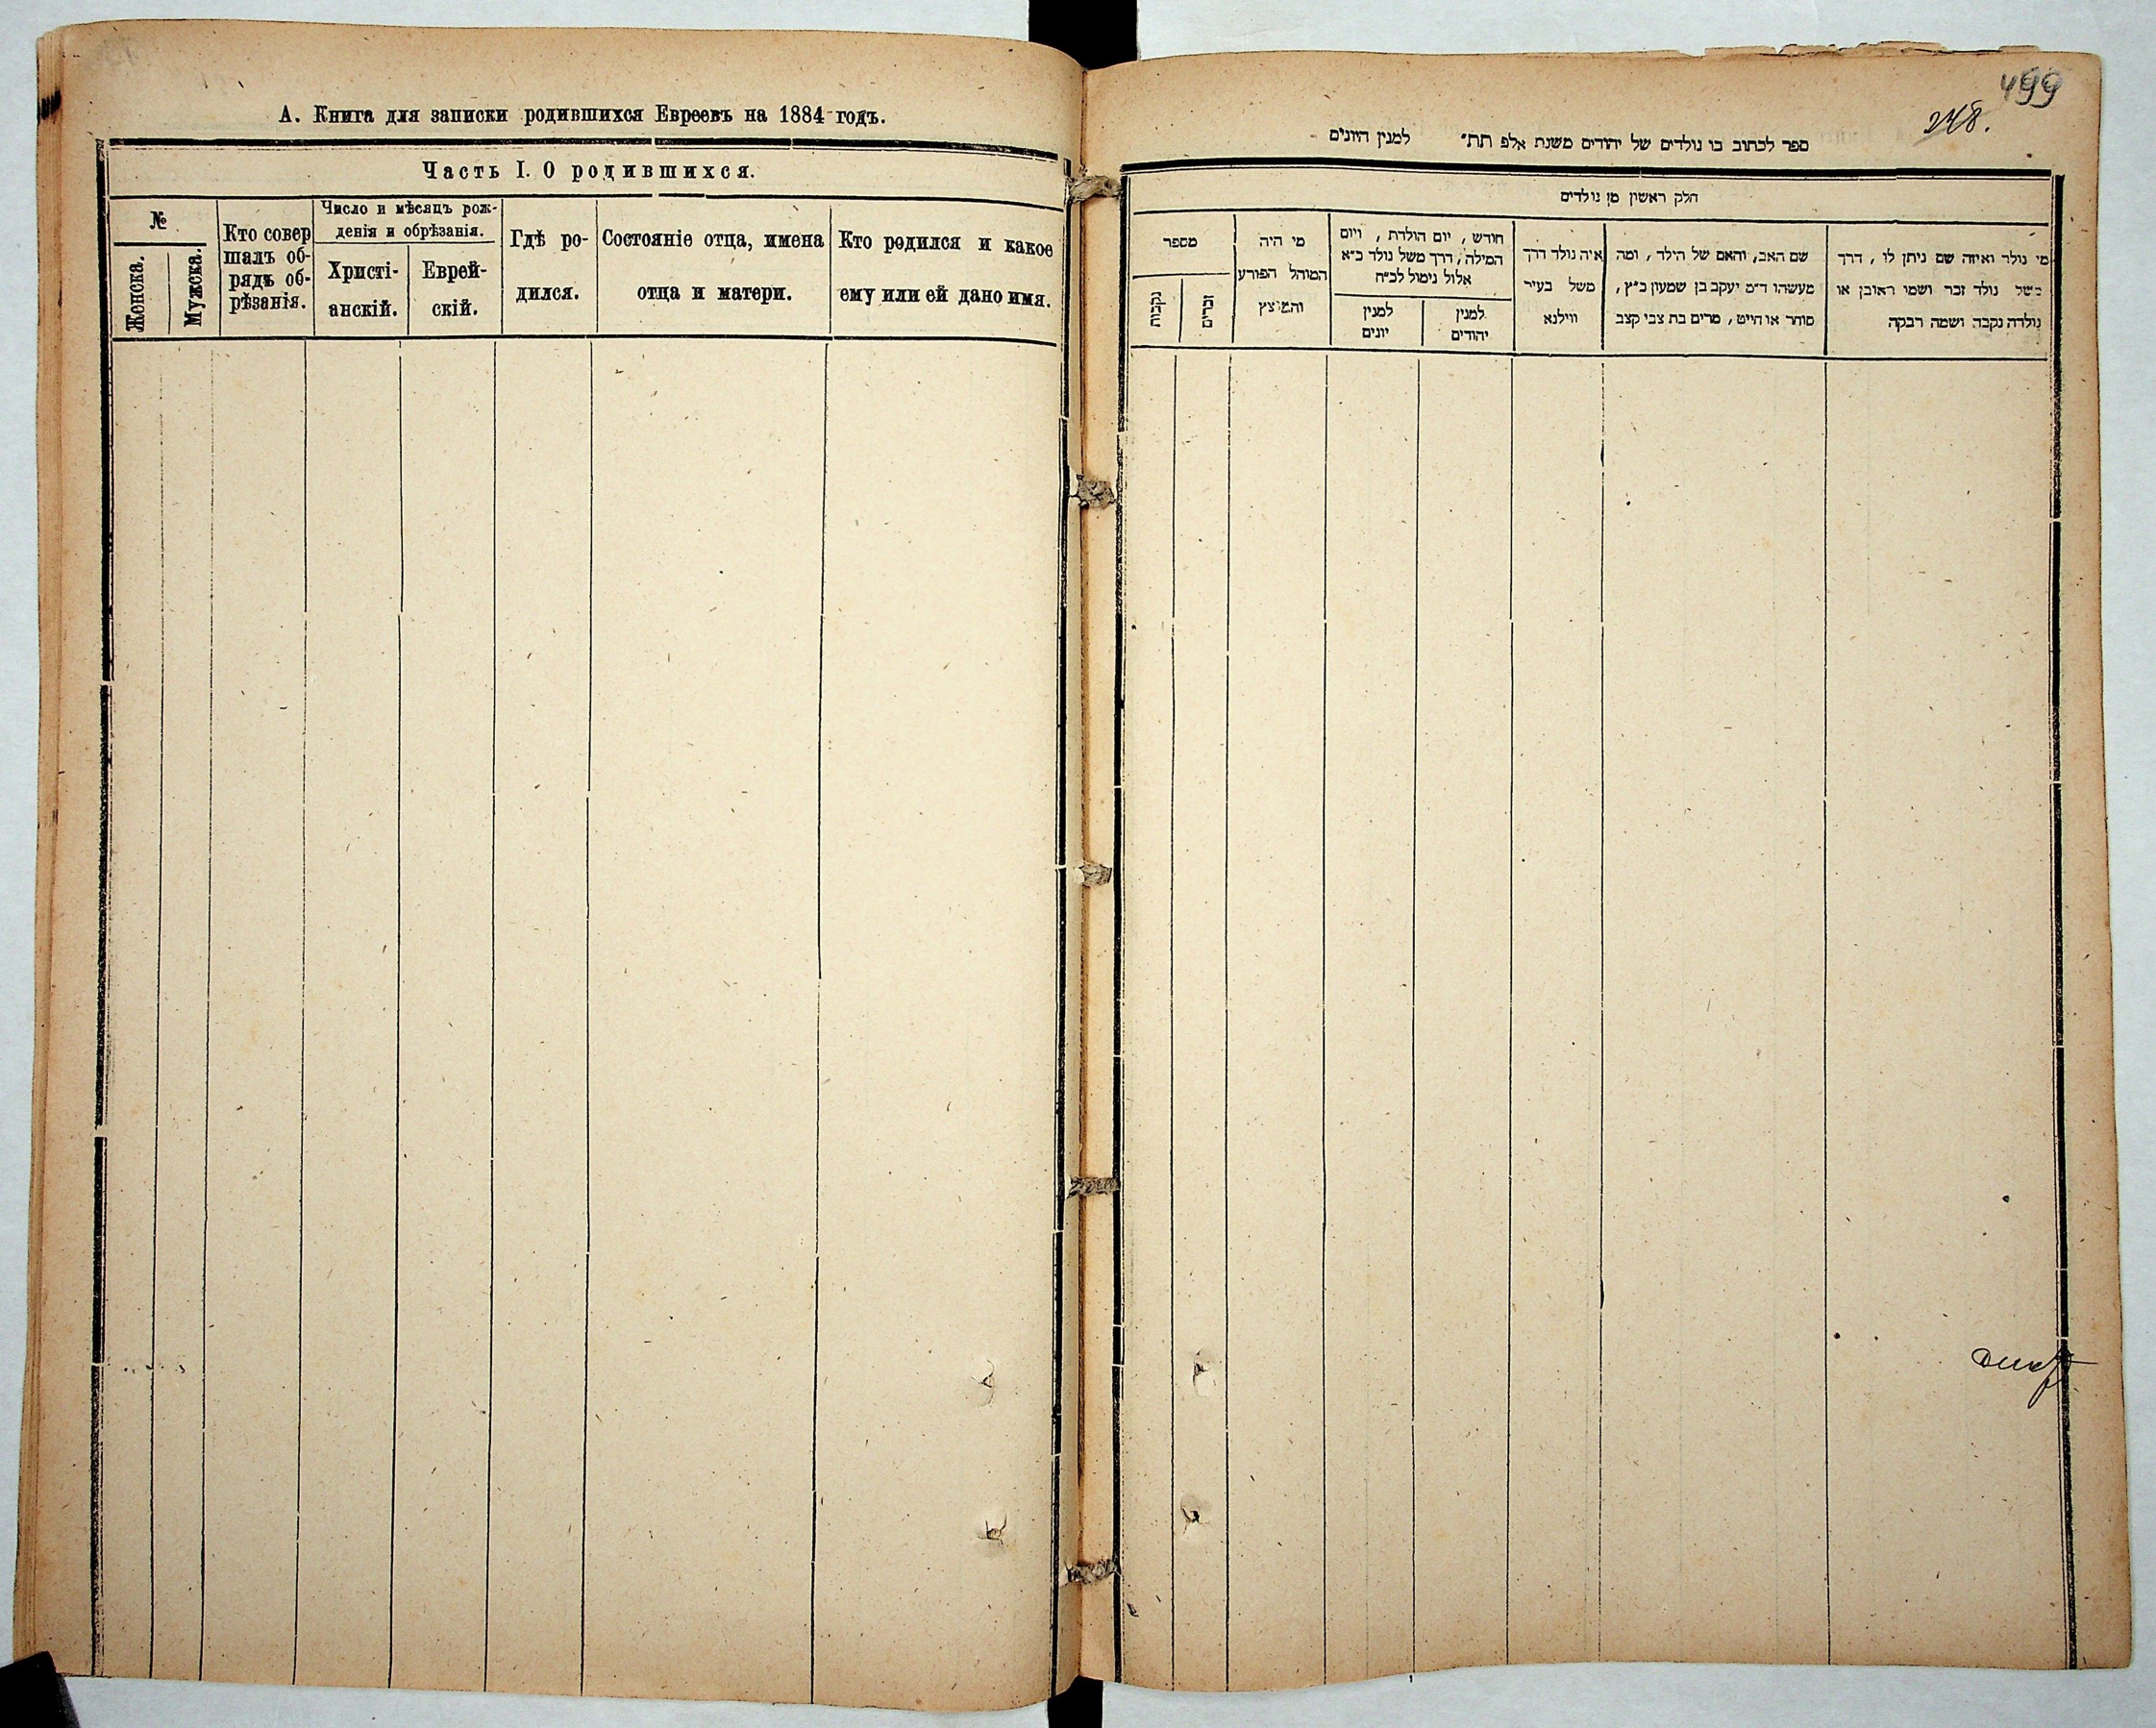 А. Книга для записки родившихся Евреевъ на 1884 годъ.
Часть I. О родившихся.
№
Женска.
Мужска.
Кто совер
шалъ об-
рядъ об-
рѣзанія.
Число и мѣсяцъ рож-
денія и обрѣзанія.
Христі-
анскій.
Еврей-
скій.
Гдѣ ро-
дился.
Состояніе отца, имена
отца и матери.
Кто родился и какое
ему или ей дано имя.
499
248.
ספר לכתוב בו נולדים של יהודים משנת אלפ תת״ למנין היונים
חלק ראשון מן נולדים
מספר
נקבות
זכרים
מי היה
המוהל הפורע
והמוצץ
חודש, יום הולדת, ויום
המילה, דרך משל נולד כ״א
אלול נימול לכ״ח
למנין
יונים
למנין
יהודים
איה נולד דרך
משל בעיר
ווילנא
שם האב, והאם של הילד, ומה
מעשהו ד״מ יעקב בן שמעון כ״ץ,
סוחר או חייט, מרים בת צבי קצב
מי נולד ואיזה שם ניתן לו, דרך
משל נולד זכר ושמו ראובן או
נולדה נקבה ושמה רבקה